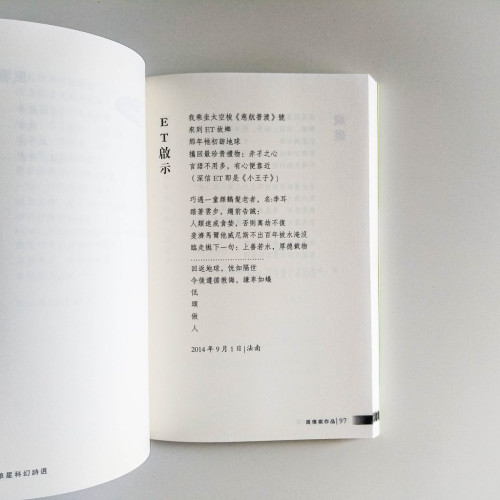 ET啟示
我乘坐太空梭《慈航普渡》號
來到ET故鄉
那年牠初訪地球
攜回最珍貴禮物：赤子之心
言語不用多，有心便靠近
（深信ET即是《小王子》）
巧遇一童顏鶴髮老者，名:李耳
踏著雲步，趨前告誡：
人類速戒貪婪，否則萬劫不復
麥濟馬爾他威尼斯不出百年被水淹沒
臨走拋下一句：上善若水，厚德載物
回返地球，恍如隔世
今後遵循教誨，謙卑如蟻
低
頭
做
人
2014年9月1日|法南
作品|97
星科幻詩選